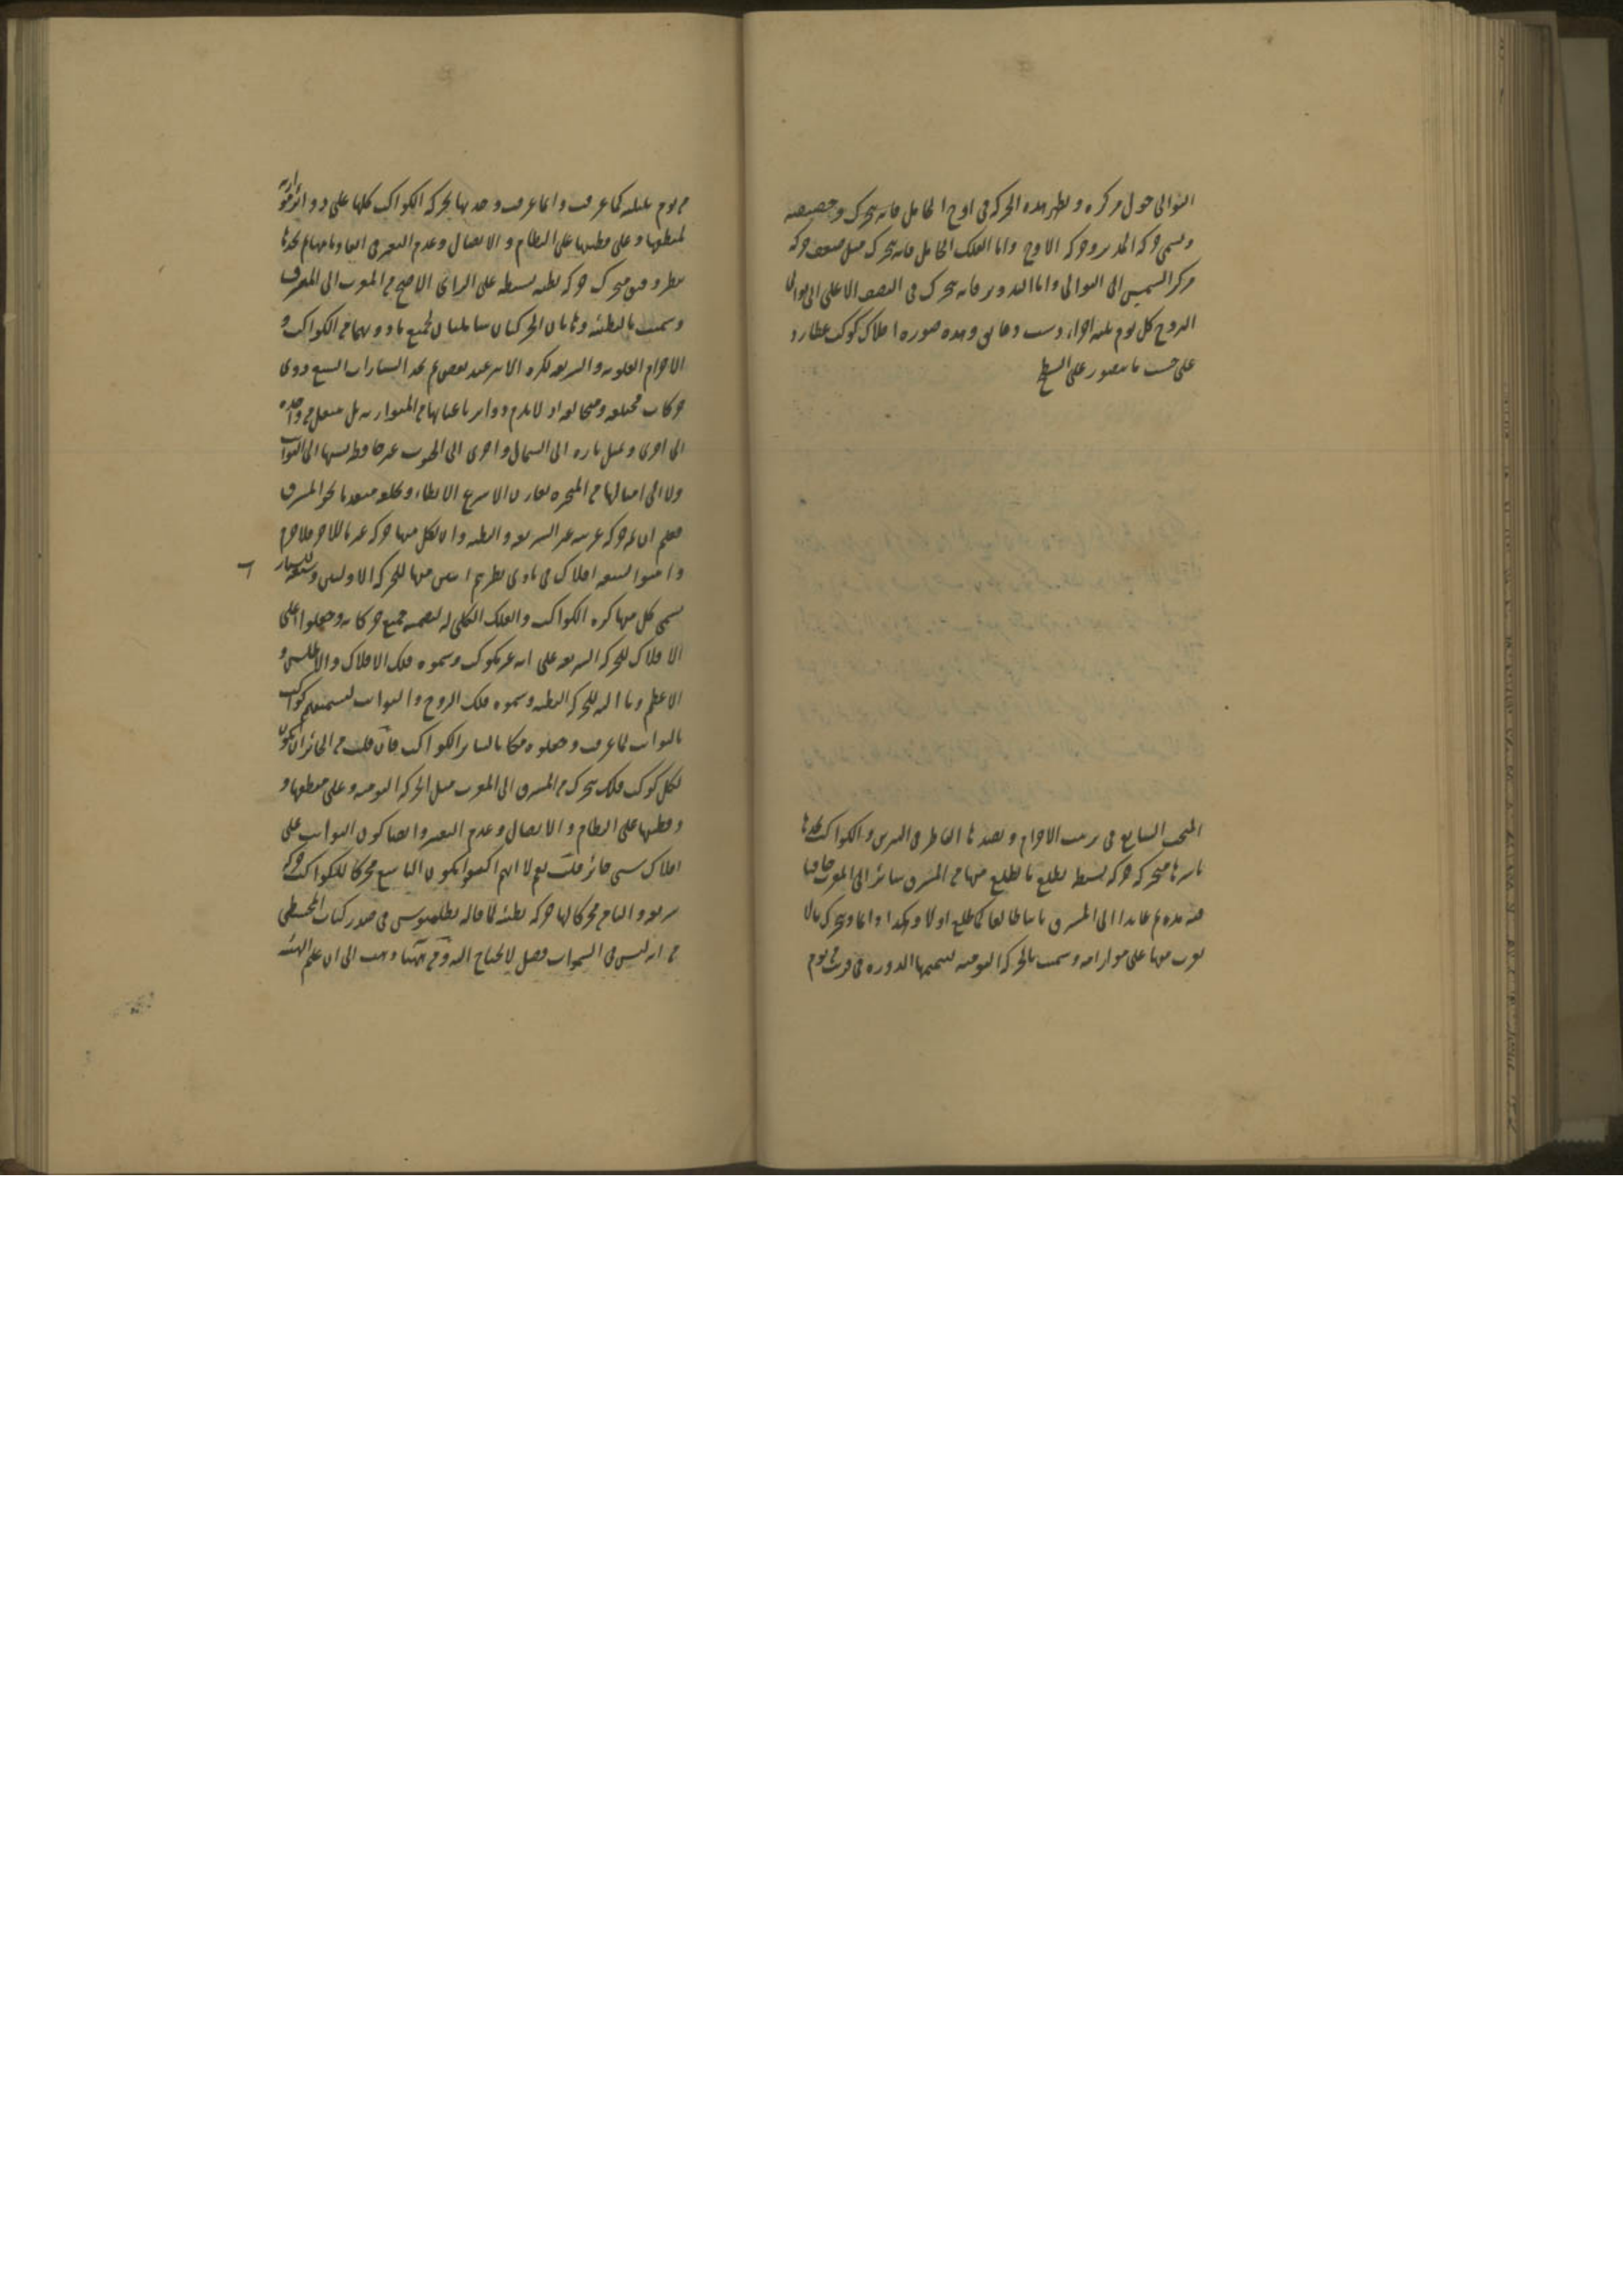 التوالى حول مركزه وتظهر هذه الحركة فى اوج الحامل فانه يتحرك وحضيضه
وتسمى حركة المدير وحركة الاوج واما الفلك الحامل فانه يتحرك مثل ضعف حركة
مركز الشمس الى التوالى واما التدوير فانه يتحرك فى النصف الاعلى الى توالى
البروج كل يوم ثلثة اجزاء وست دقايق وهذه صورة افلاك كوكب عطارد
على حسب ما يتصور على السطح
المبحث السابع فى ترتيب الاجرام ونضدها الناظر فى النيرين والكواكب يجدها
باسرها متحركة حركة بسيطة يطلع ما يطلع منها من المشرق سائرا الى المغرب خافيا
فيه مدة ثم عايدا الى المشرق ثانيا طالعا كما طلع اولا وهكذا دائما ويتحرك مالا
يغرب منها على موازاته وسميت بالحركة اليومية لتتميمها الدورة فى قريب من يوم
من يوم بليلة كما عرفت وانما عرفت وحدتها بحركة الكواكب كلها على دوائر موازية
لمنطقها وعلى قطبها على النظام والاتصال وعدم التغير فى ابعاد ما بينها ثم يجدها
بنظر دقيق متحركة حركة بطيئة بسيطة على الراى الاصح من المغرب الى المشرق
وسميت بالبطيئة وهاتان الحركتان شاملتان لجميع ما دونهما من الكواكب و
الاجرام العلوية والسريعة لكرة الاثير عند بعض ثم يجد السيارات السبع ذوى
حركات مختلفة ومتخالفة اذ لا يلزم دواير باعيانها من المتوازية بل ينتقل من واحدة
الى اخرى ويميل تارة الى الشمال واخرى الى الجنوب غير حافظة نسبها الى الثوابت
ولا الى امثالها من المتحيرة يقارن الاسرع الابطاء ويخلفه متعديا نحو المشرق
فعلم ان ثم حركة غريبة غير السريعة والبطيئة وان لكل منها حركة غير ما للاخر فلا جرم
واثبتوا تسعة افلاك فى بادى نظرهم اثنين منها للحركة الاوليين وسبعة للسيارة
يسمى كل منها كرة الكواكب والفلك الكلى له لتضمنه جميع حركاته وجعلوا اعلى
الافلاك للحركة السريعة على انه غير مكوكب وسموه فلك الافلاك والاطلس و
الاعظم وتاليه للحركة البطيئة وسموه فلك البروج والثوابت لتسميتهم كواكبه
بالثوابت لما عرفت وجعلوه مكانا لساير الكواكب فان قلت من الجائز ان يكون
لكل كوكب فلك يتحرك من المشرق الى المغرب مثل الحركة اليومية وعلى منطقها و
وقطبها على النظام والاتصال وعدم التغير وايضا كون الثوابت على
افلاك شتى جائز قلت نعم لا انهم اكتفوا بكون التاسع محركا للكواكب حركة
سريعة والثامن محركا لها حركة بطيئة لما قاله بطلميوس فى صدر كتاب المجسطى
من انه ليس فى السموات فضل لا يحتاج اليه ومن ههنا ذهب الى ان علم الهيئة